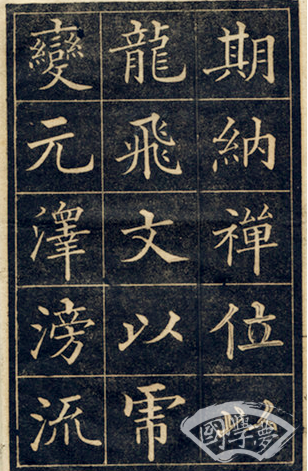 期納禪位
龍飛文以虎
變元澤滂流
國學夢